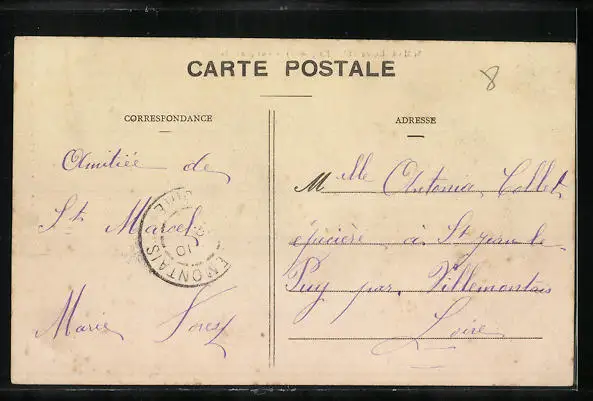 CARTE POSTALE
8
CORRESPONDANCE
ADRESSE
Amitiée de
St Marcel
Marie
Mlle Antonia Collet
épicière à St jean le
Puy par Villemontais
Loire
EMONTAIS
10